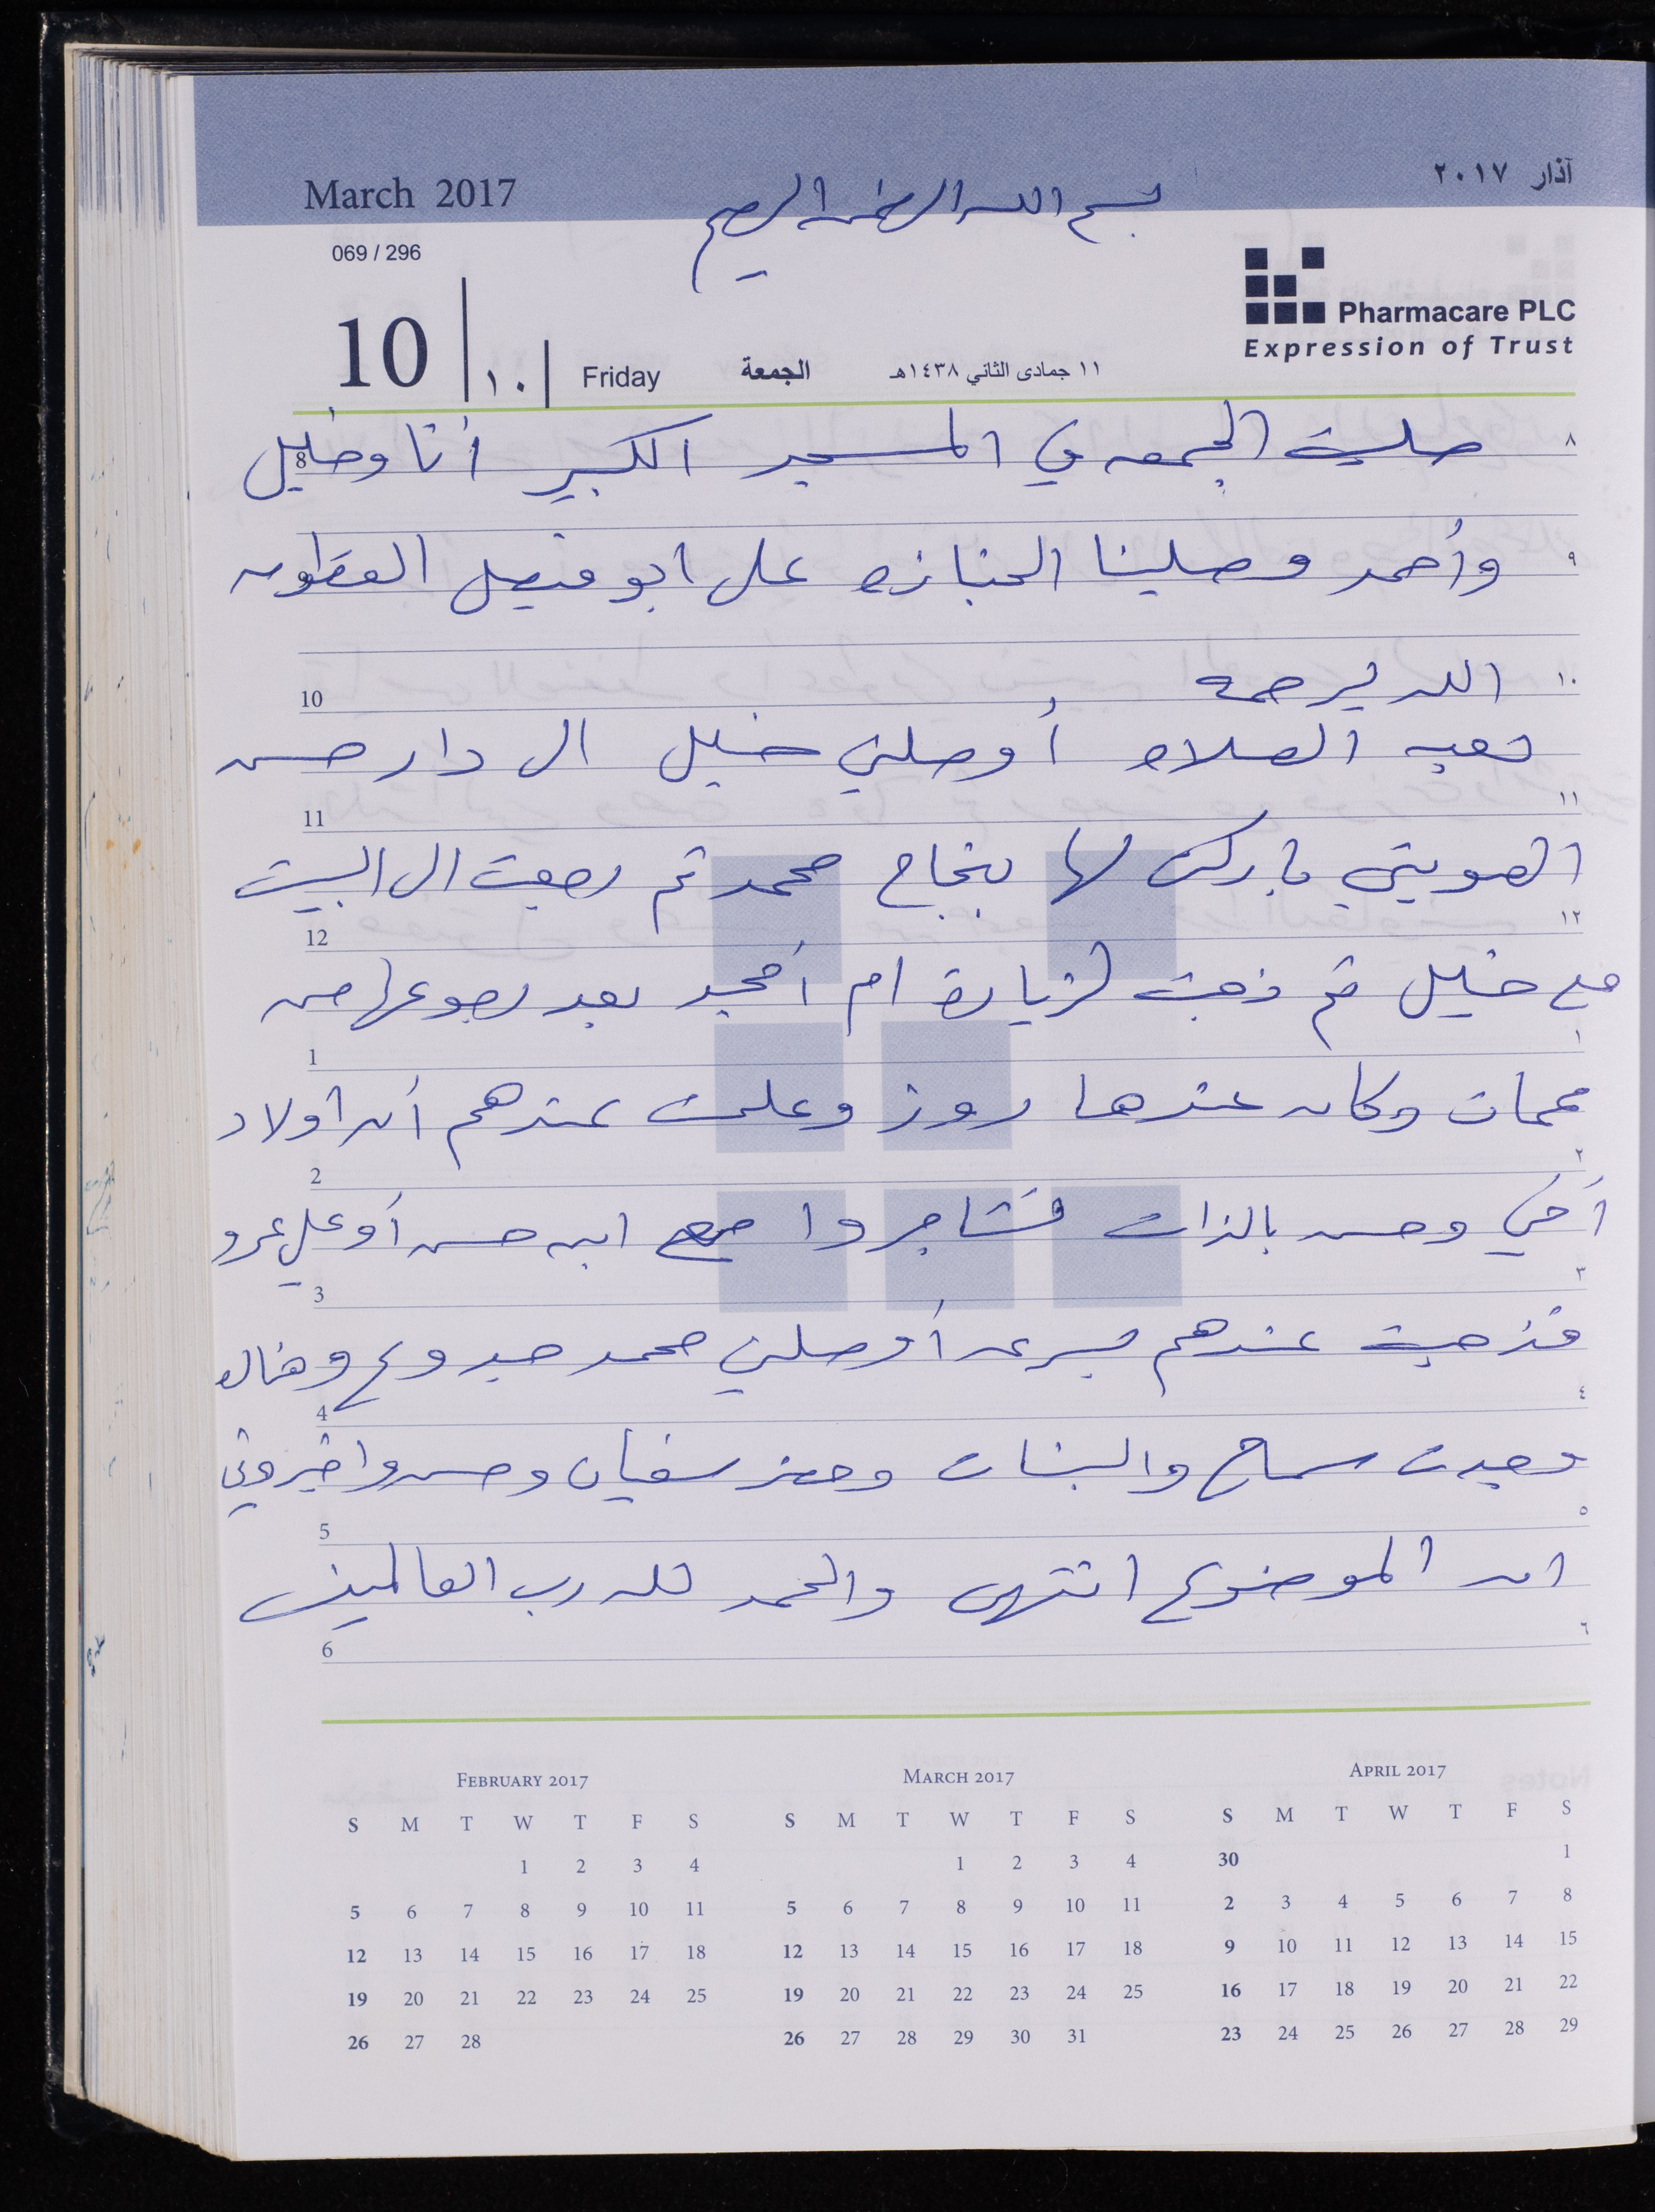 March 2017
آذار ٢٠١٧
بسم الله الرحمن الرحيم
069 / 296
Pharmacare PLC
Expression of Trust
10 ١٠ Friday الجمعة ١١ جمادى الثاني ١٤٣٨هـ
٨ صليت الجمعه في المسجد الكبير أنا وخليل 8
٩ وأحمد وصلينا الجنازه على ابو فيصل
١٠ الله يرحمه 10
بعد الصلاه أوصلني خليل الى دار حسن
١١ 11
باركت لها بنجاح محمد ثم رجعت الى البيت
١٢ 12
مع خليل ثم ذهبت لزيارة ام أمجد بعد رجوعها من
١ 1
عمان وكان عندها روز وعلمت عندهم أن اولاد
٢ 2
أخي وحسن بالذات تشاجروا مع ابن حسن أو علي عمرو
٣ 3
فذهبت عندهم بسرعه أوصلني محمد جدوع وهناك
٤ 4
وجدت سماح والبنات ومعز سفيان وحسن واخبروني
٥ 5
ان الموضوع انتهى والحمد لله رب العالمين
٦ 6
FEBRUARY 2017
S M T W T F S
1 2 3 4
5 6 7 8 9 10 11
12 13 14 15 16 17 18
19 20 21 22 23 24 25
26 27 28
MARCH 2017
S M T W T F S
1 2 3 4
5 6 7 8 9 10 11
12 13 14 15 16 17 18
19 20 21 22 23 24 25
26 27 28 29 30 31
APRIL 2017
S M T W T F S
30 1
2 3 4 5 6 7 8
9 10 11 12 13 14 15
16 17 18 19 20 21 22
23 24 25 26 27 28 29